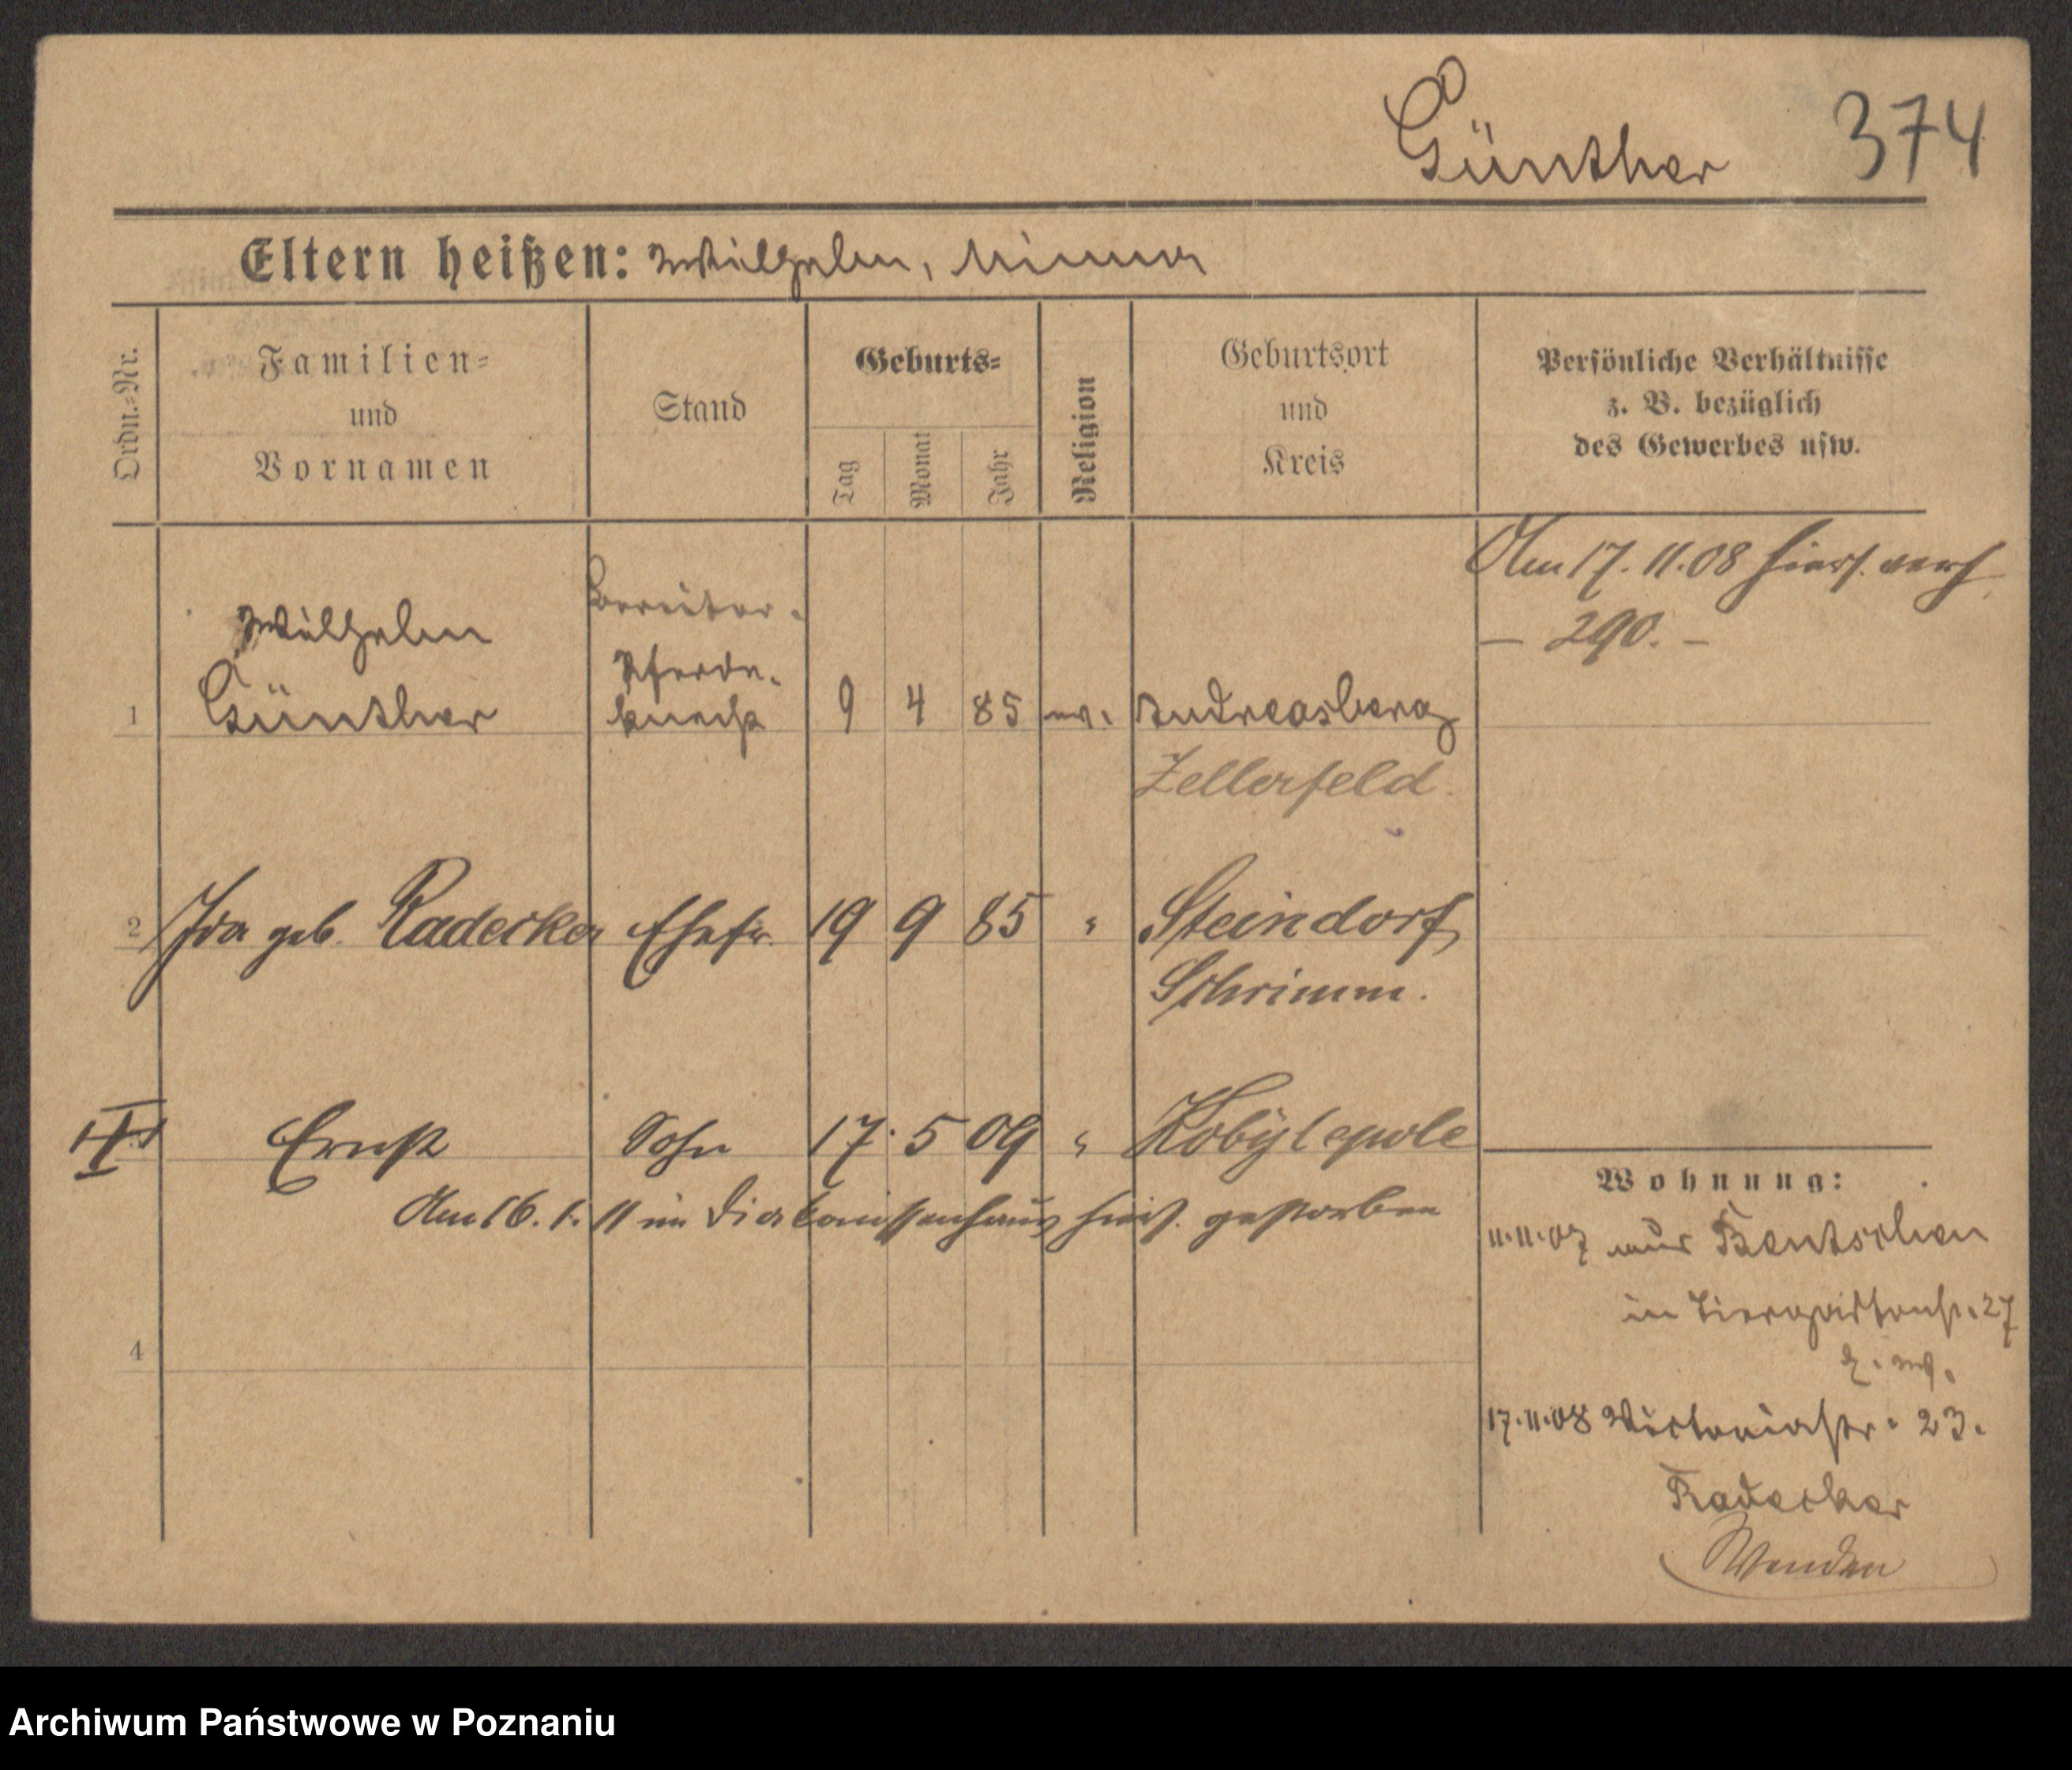 Günther 374
Eltern heißen: Wilhelm, Minna
Ordn.-Nr.
Familien-
und
Vornamen
Stand
Geburts-
Tag
Monat
Jahr
Religion
Geburtsort
und
Kreis
Persönliche Verhältnisse
z. B. bezüglich
des Gewerbes usw.
Am 17.11.08 hiers. verh
– 290. –
Bereiter.
Wilhelm
Pferde-
1 Günther knecht 9 4 85 ev. Andreasberg
Zellerfeld.
2 Ida geb. Radecker Ehefr. 19 9 85 " Steindorf
Schrimm.
Ernst Sohn 17. 5 09 " Kobylepole
Am 16. 1. 11 im Diakonissenhaus hies. gestorben
4
Wohnung:
11.11.07 aus Bentschen
in Tiergartenstr. 27
17.11.08 Victoriastr. 23.
Radecker
Wenden
Archiwum Państwowe w Poznaniu